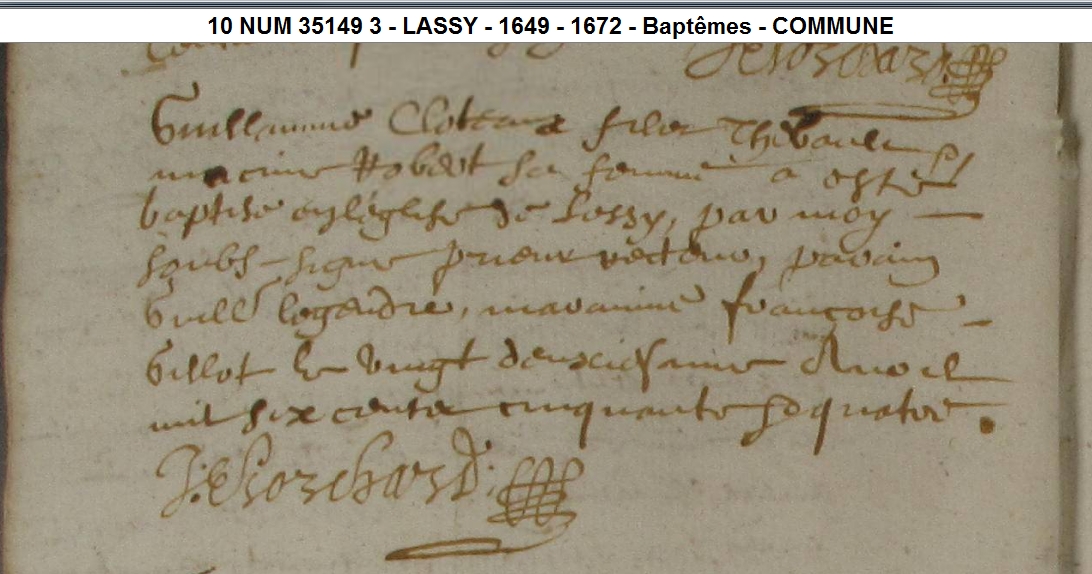 10 NUM 35149 3 - LASSY - 1649 - 1672 - Baptêmes - COMMUNE
Guillaume filz Thebault
Robert sa femme a esté
baptisé en leglise de Lassy, par moy
soubs-signé prieur recteur, parain
Guill legendre, marainne françoise
Gillot le vingt deuxiesme Apvril
mil six cents cinquante & quatre.